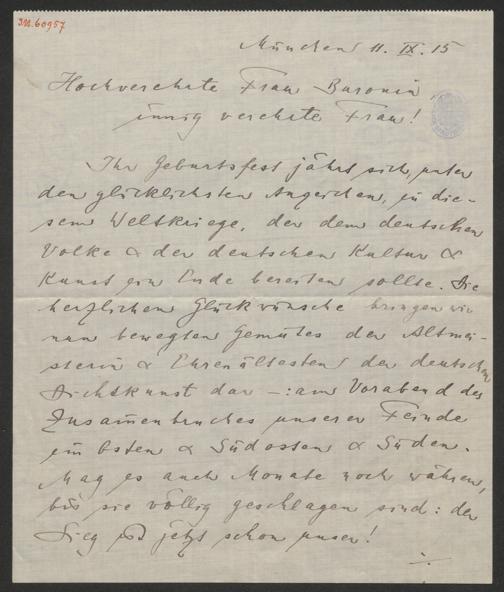 I.N. 60957
München 11. IX. 15
Hochverehrte Frau Baronin,
innig verehrte Frau!
Ihr Geburtsfest jährt sich, unter
den glücklichsten Anzeichen, in die-
sem Weltkriege, der dem deutschen
Volke & der deutschen Kultur &
Kunst ein Ende bereiten sollte. Die
herzlichen Glückwünsche bringen wir
nun bewegten Gemütes der Altmei-
sterin & Ehrenältesten der deutschen
Dichtkunst dar —: am Vorabend des
Zusam̄enbruches unserer Feinde
im Osten & Südosten & Süden.
Mag es auch Monate noch währen,
bis sie völlig geschlagen sind: der
Sieg ist jetzt schon unser!
./.